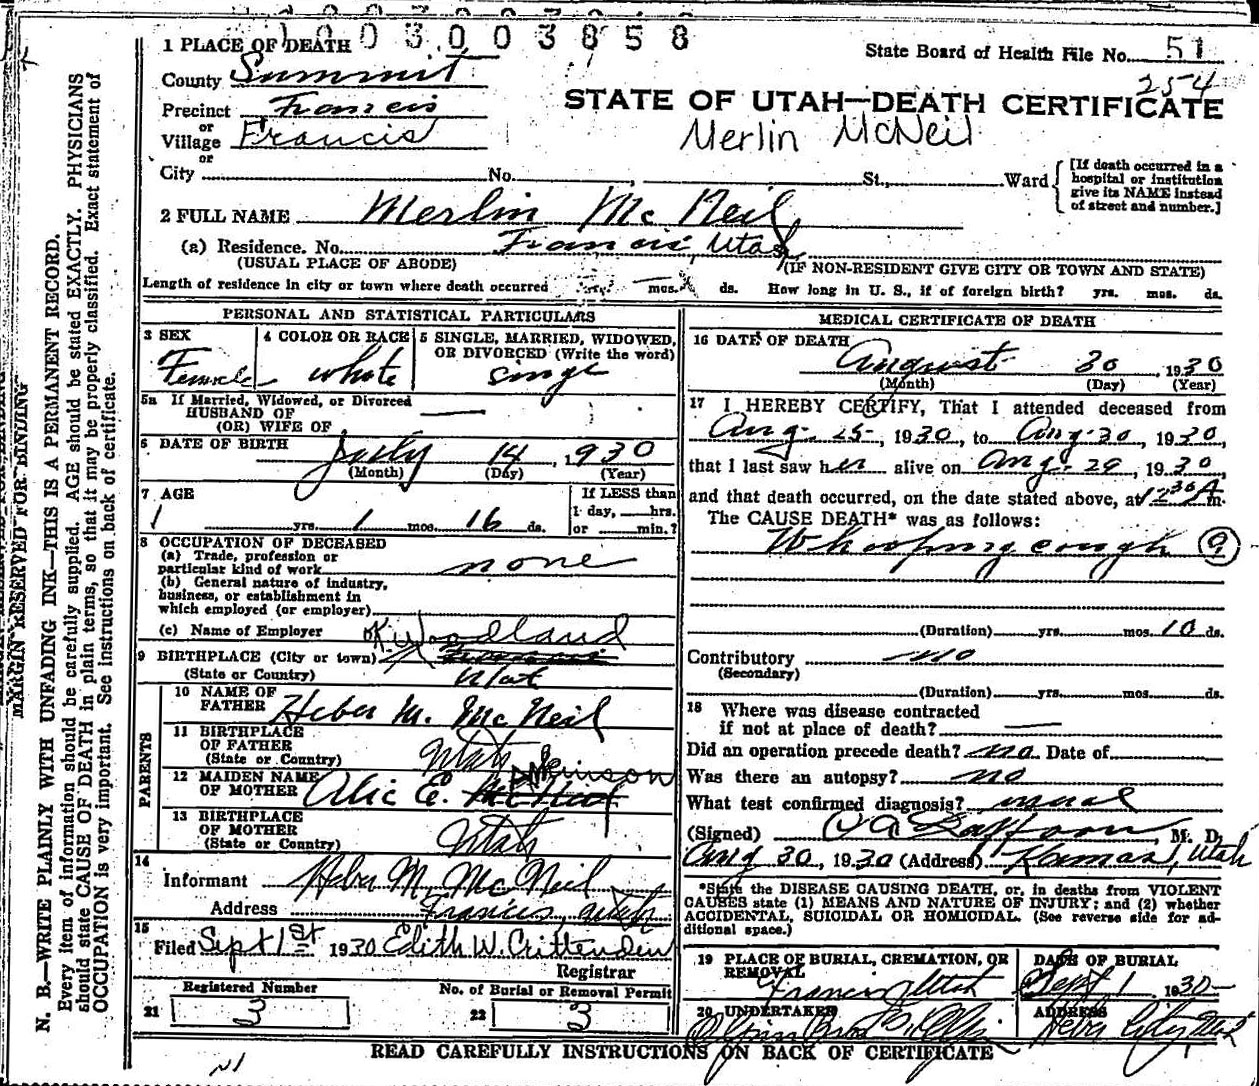 1003003858
1 PLACE OF DEATH
State Board of Health File No. 51
254
County Summit
Precinct Francis
or
Village Francis
or
STATE OF UTAH—DEATH CERTIFICATE
Merlin McNeil
City No. St., Ward
[If death occurred in a hospital or institution give its NAME instead of street and number.]
2 FULL NAME Merlin Mc Neil
(a) Residence. No. Francis, Utah
(USUAL PLACE OF ABODE) (IF NON-RESIDENT GIVE CITY OR TOWN AND STATE)
Length of residence in city or town where death occurred mos. ds. How long in U. S., if of foreign birth? yrs. mos. ds.
PERSONAL AND STATISTICAL PARTICULARS
3 SEX 4 COLOR OR RACE 5 SINGLE, MARRIED, WIDOWED,
OR DIVORCED (Write the word)
Female white
5a If Married, Widowed, or Divorced
HUSBAND OF
(OR) WIFE OF
6 DATE OF BIRTH July 14, 1930
(Month) (Day) (Year)
7 AGE
If LESS than
1 day, hrs.
or min.?
1 yrs. 1 mos. 16 ds.
8 OCCUPATION OF DECEASED
(a) Trade, profession or
particular kind of work none
(b) General nature of industry,
business, or establishment in
which employed (or employer)
(c) Name of Employer
Woodland
9 BIRTHPLACE (City or town) Francis
(State or Country) Utah
PARENTS
10 NAME OF
FATHER Heber M. Mc Neil
11 BIRTHPLACE
OF FATHER
(State or Country) Utah
12 MAIDEN NAME
OF MOTHER Alic E. McNeil Atkinson
13 BIRTHPLACE
OF MOTHER
(State or Country) Utah
14
Informant Heber M. McNeil
Address Francis, Utah
15
Filed Sept 1st 1930 Edith W. Crittenden
Registrar
Registered Number No. of Burial or Removal Permit
21 3 22 3
MEDICAL CERTIFICATE OF DEATH
16 DATE OF DEATH
August 30 1930
(Month) (Day) (Year)
17 I HEREBY CERTIFY, That I attended deceased from
Aug. 25, 1930, to Aug. 30, 1930,
that I last saw her alive on Aug. 29, 1930,
and that death occurred, on the date stated above, at 1230 A m.
The CAUSE DEATH* was as follows:
Whooping cough 9
(Duration) yrs. mos. 10 ds.
Contributory no
(Secondary)
(Duration) yrs. mos. ds.
18 Where was disease contracted
if not at place of death?
Did an operation precede death? no Date of
Was there an autopsy? no
What test confirmed diagnosis? usual
(Signed) M. D.
Aug 30, 1930 (Address) Kamas, Utah
*State the DISEASE CAUSING DEATH, or, in deaths from VIOLENT
CAUSES state (1) MEANS AND NATURE OF INJURY; and (2) whether
ACCIDENTAL, SUICIDAL OR HOMICIDAL. (See reverse side for ad-
ditional space.)
19 PLACE OF BURIAL, CREMATION, OR
REMOVAL
Francis, Utah
DATE OF BURIAL
Sept 1 1930
20 UNDERTAKER
ADDRESS
Heber City, Utah
READ CAREFULLY INSTRUCTIONS ON BACK OF CERTIFICATE
MARGIN RESERVED FOR BINDING
N. B.—WRITE PLAINLY WITH UNFADING INK—THIS IS A PERMANENT RECORD.
Every item of information should be carefully supplied. AGE should be stated EXACTLY. PHYSICIANS
should state CAUSE OF DEATH in plain terms, so that it may be properly classified. Exact statement of
OCCUPATION is very important. See instructions on back of certificate.